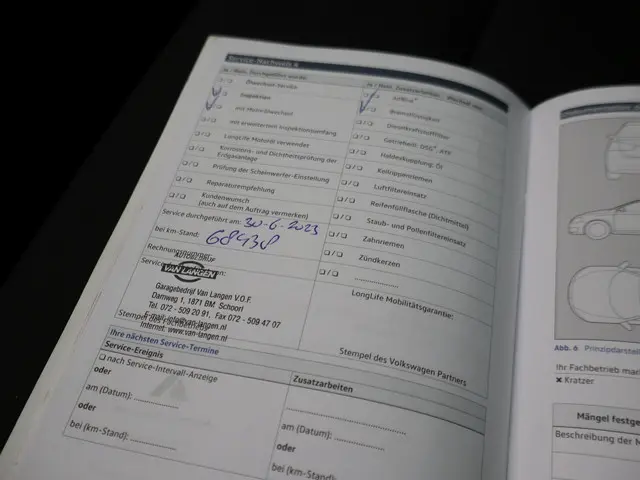 Service-Nachweis 4
Ja - Nein, Durchgeführt wurde:
Ja - Nein, Zusatzarbeiten
❑ / ❑ Ölwechsel-Service
❑ / ❑ Inspektion
❑ / ❑ mit Motorölwechsel
❑ / ❑ mit erweitertem Inspektionsumfang
❑ / ❑ LongLife Motoröl verwendet
❑ / ❑ Korrosions- und Dichtheitsprüfung der Erdgasanlage
❑ / ❑ Prüfung der Scheinwerfer-Einstellung
❑ / ❑ Reparaturempfehlung
❑ / ❑ Kundenwunsch
(auch auf dem Auftrag vermerken)
Service durchgeführt am: 30-6-2023
bei km-Stand: 68938
Rechnungsnummer:
AUTOBEDRIJF
VAN LANGEN
Garagebedrijf Van Langen V.O.F.
Damweg 1, 1871 BM. Schoorl
Tel. 072 - 509 20 91, Fax 072 - 509 47 07
E-mail: info@van-langen.nl
Internet: www.van-langen.nl
Stempel des Fachbetriebs
❑ / ❑ Bremsflüssigkeit
❑ / ❑ Dieselkraftstofffilter
❑ / ❑ Getriebeöl: DSG®, ATF
❑ / ❑ Haldexkupplung: Öl
❑ / ❑ Keilrippenriemen
❑ / ❑ Luftfiltereinsatz
❑ / ❑ Reifenfüllflasche (Dichtmittel)
❑ / ❑ Staub- und Pollenfiltereinsatz
❑ / ❑ Zahnriemen
❑ / ❑ Zündkerzen
❑ / ❑ ....................
LongLife Mobilitätsgarantie:
Stempel des Volkswagen Partners
Ihre nächsten Service-Termine
Service-Ereignis
❑ nach Service-Intervall-Anzeige
oder
am (Datum): ....................
oder
bei (km-Stand): ....................
Zusatzarbeiten
....................
am (Datum): ....................
oder
bei (km-Stand): ....................
Abb. 6 Prinzipdarste
Ihr Fachbetrieb mar
✖ Kratzer
Mängel festge
Beschreibung der M